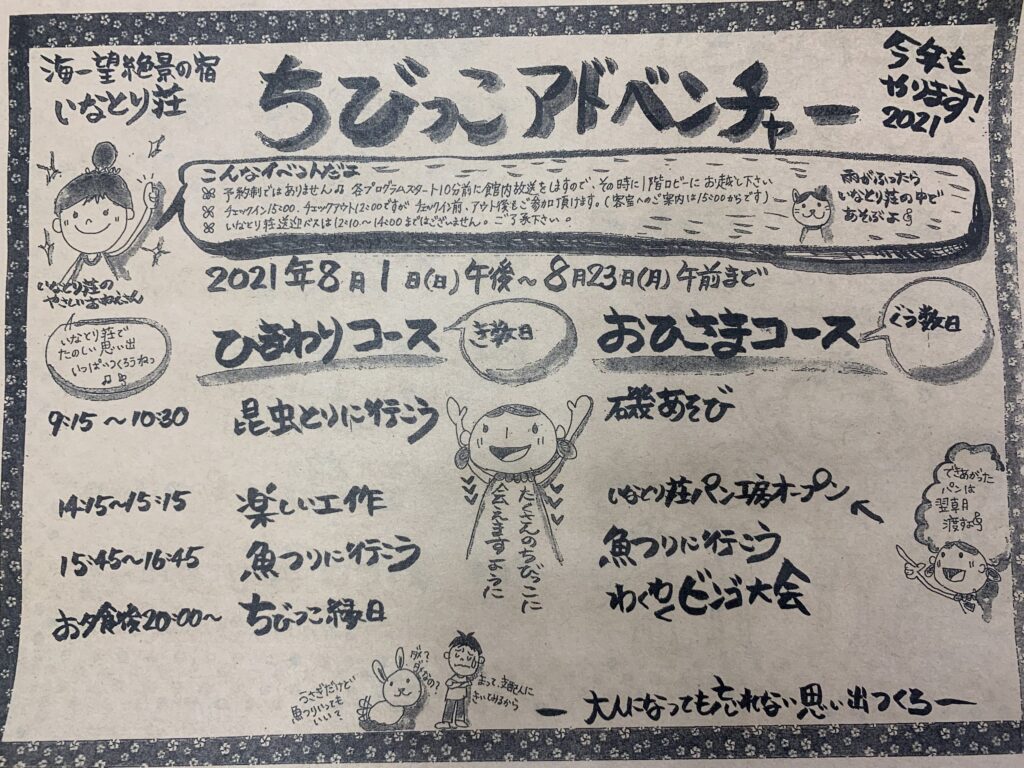 海一望絶景の宿
いなとり荘
ちびっこアドベンチャー
今年も
やります!
2021
こんなイベントだよ
予約制ではありません♫ 各プログラムスタート10分前に館内放送をしますので、その時に1階ロビーにお越し下さい
チェックイン15:00、チェックアウト12:00ですが チェックイン前、アウト後もご参加頂けます。(客室へのご案内は15:00からです)
いなとり荘送迎バスは12:10〜14:00まではございません。ご了承下さい。
雨がふったら
いなとり荘の中で
あそぶよ
いなとり荘の
やさしいおねえさん
2021年8月1日(日)午後〜8月23日(月)午前まで
いなとり荘で
たのしい思い出
いっぱいつくろうねっ
ひまわりコース
き数日
おひさまコース
ぐう数日
9:15〜10:30 昆虫とりに行こう 磯あそび
14:15〜15:15 楽しい工作 いなとり荘パン工房オープン
15:45〜16:45 魚つりに行こう 魚つりに行こう
お夕食後20:00〜 ちびっこ縁日 わくわくビンゴ大会
たくさんのちびっこに
会えますように
できあがった
パンは
翌朝
渡すよ
うさぎだけど
魚つりいっても
いい?
ダメ?
ダメなの?
まって、支配人に
きいてみるから
ー 大人になっても忘れない思い出つくろ ー